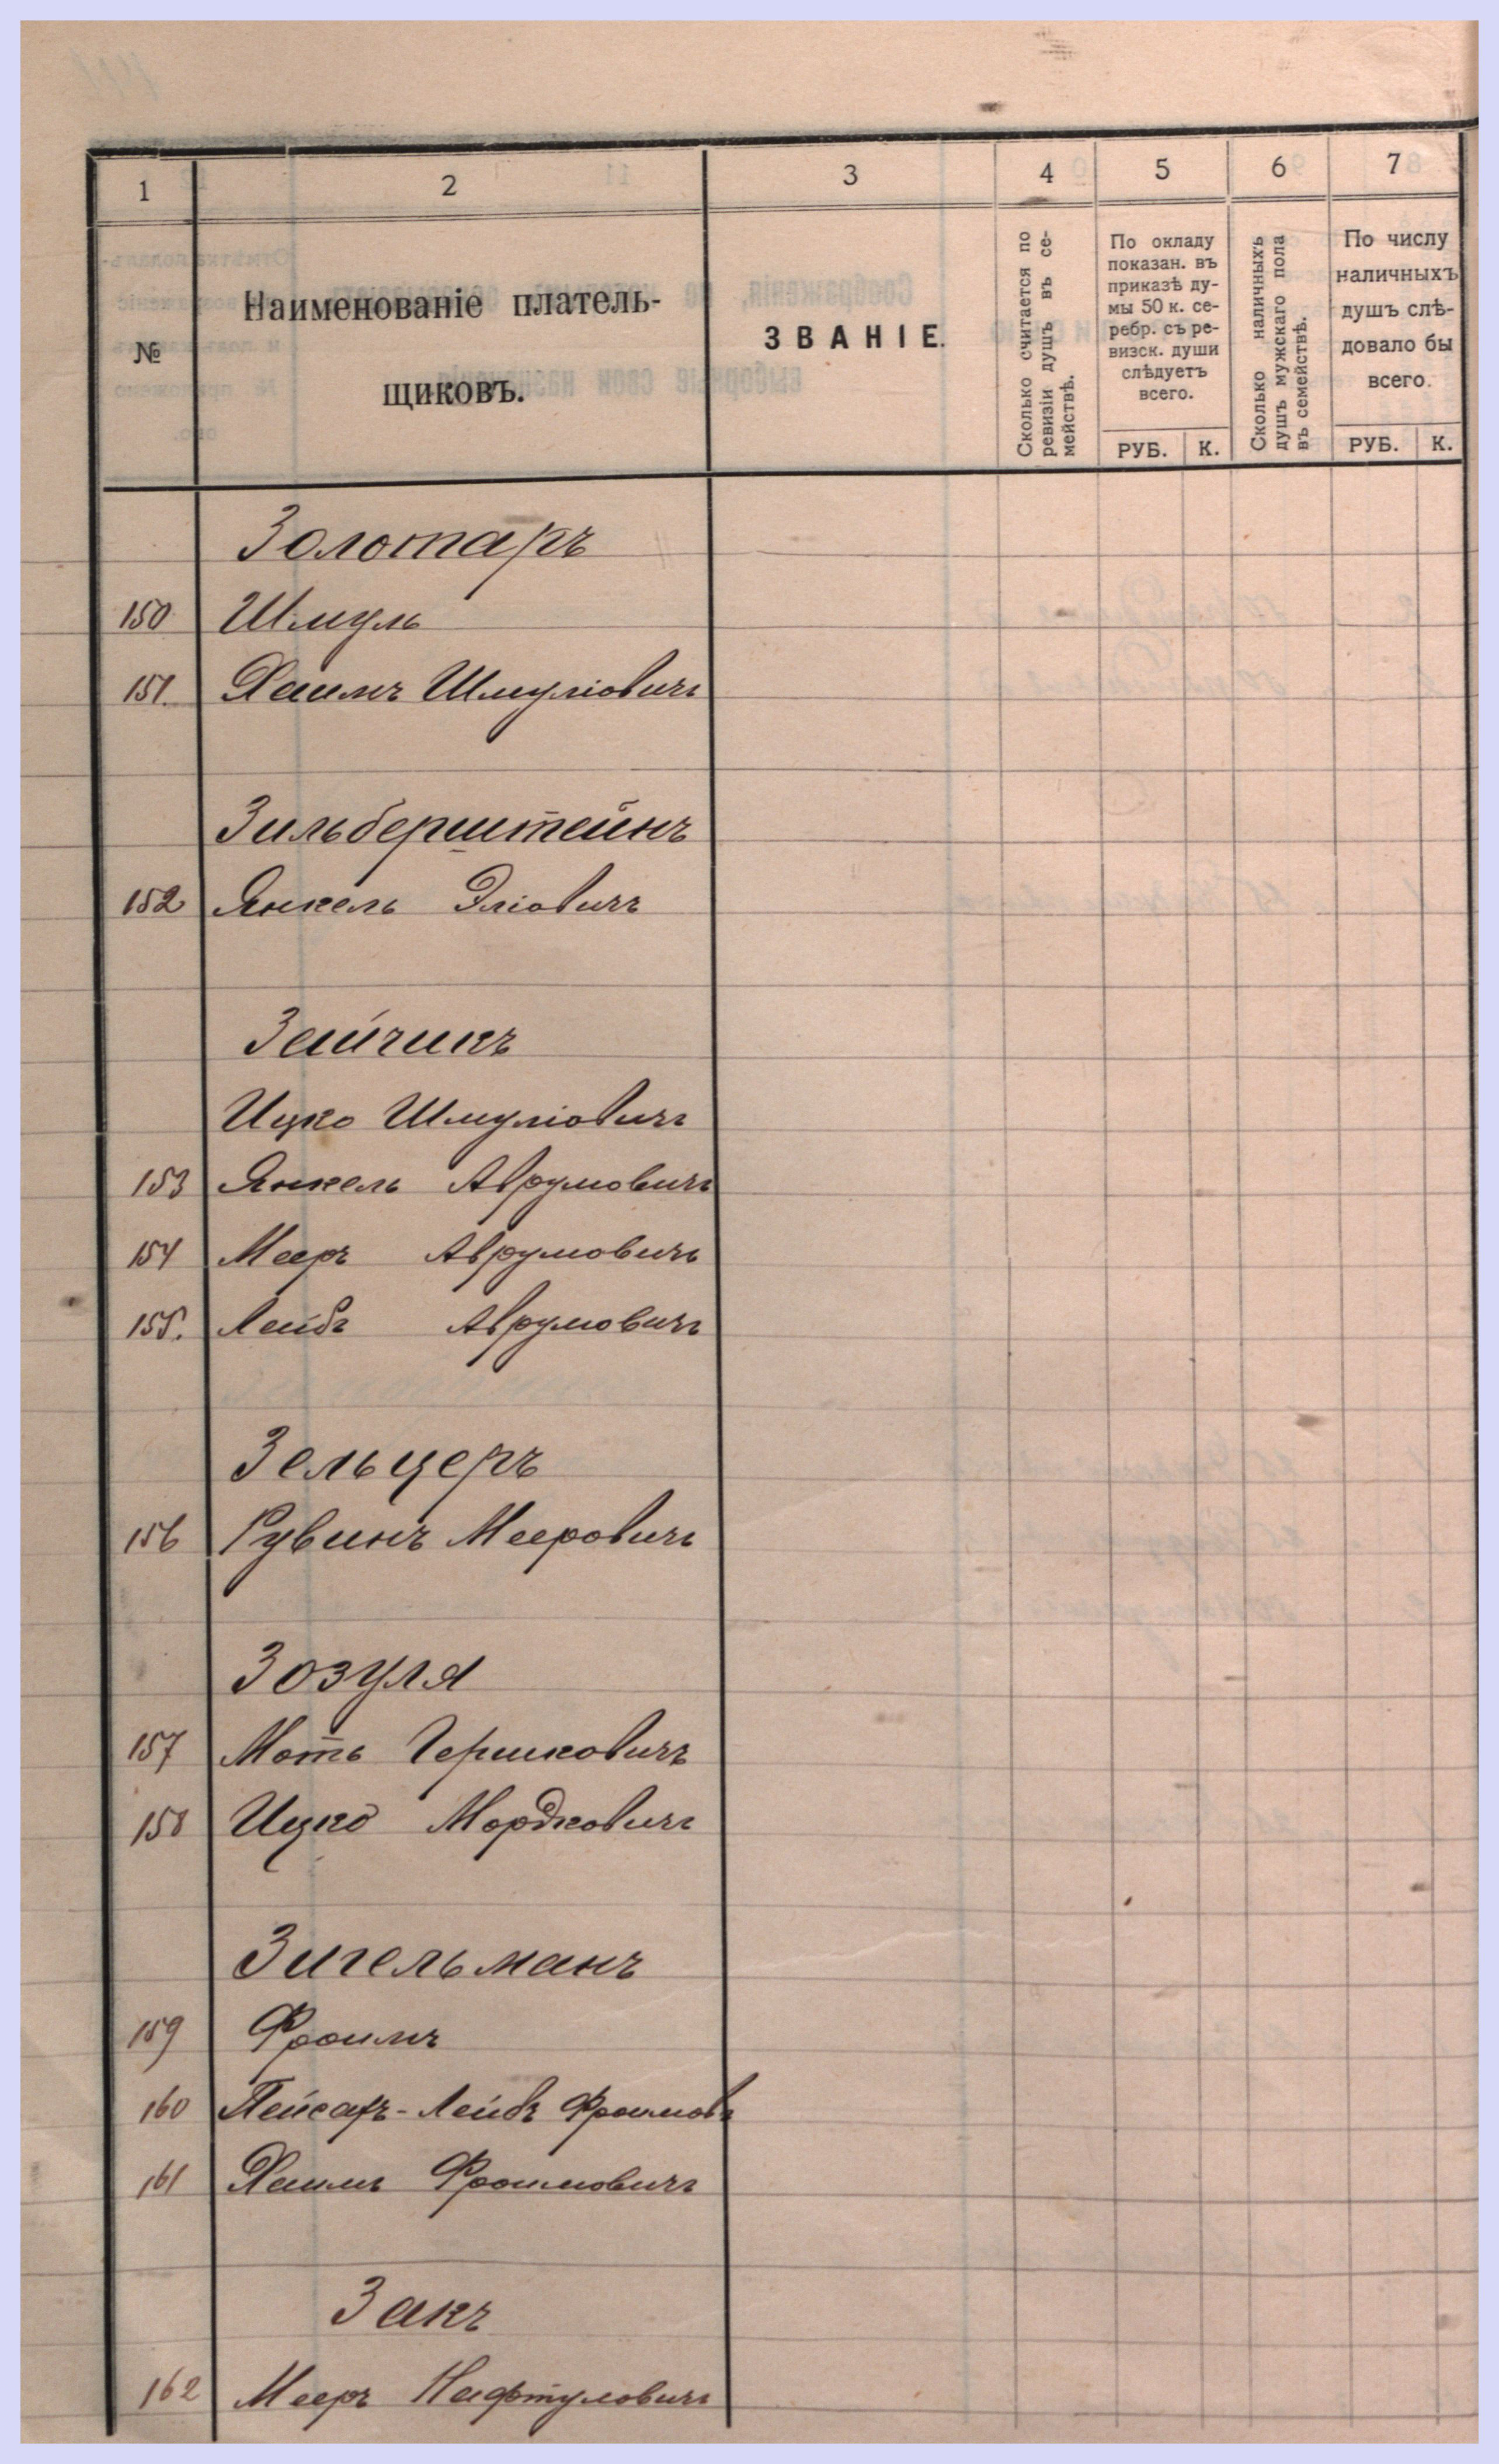 1 2 3 4 5 6 7
№
Наименованіе платель-
щиковъ.
ЗВАНІЕ.
Сколько считается по
ревизіи душъ въ се-
мействѣ.
По окладу
показан. въ
приказѣ ду-
мы 50 к. се-
ребр. съ ре-
визск. души
слѣдуетъ
всего.
РУБ. К.
Сколько наличныхъ
душъ мужскаго пола
въ семействѣ.
По числу
наличныхъ
душъ слѣ-
довало бы
всего.
РУБ. К.
Золотаръ
150 Шмуль
151. Хаимъ Шмуліовичъ
Зильберштейнъ
152 Янкель Эліовичъ
Зайчикъ
Ицко Шмуліовичъ
153 Янкель Аврумовичъ
154 Мееръ Аврумовичъ
155. Лейбъ Аврумовичъ
Зельцеръ
156 Рувинъ Мееровичъ
Зозуля
157 Моть Гершковичъ
158 Ицко Мордковичъ
Зигельманъ
159 Фроимъ
160 Пейсахъ-Лейбъ Фроимовъ
161 Хаимъ Фроимовичъ
Закъ
162 Мееръ Нафтуловичъ